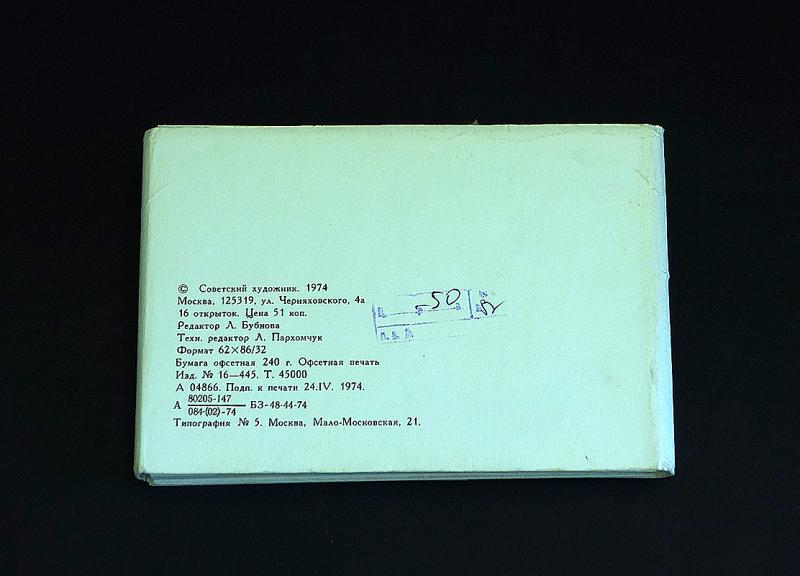 © Советский художник. 1974
Москва, 125319, ул. Черняховского, 4а
16 открыток. Цена 51 коп.
Редактор Л. Бубнова
Техн. редактор Л. Пархомчук
Формат 62×86/32
Бумага офсетная 240 г. Офсетная печать
Изд. № 16—445. Т. 45000
А 04866. Подп. к печати 24.IV. 1974.
А 80205-147
084-(02)-74 БЗ-48-44-74
Типография № 5. Москва, Мало-Московская, 21.
-50